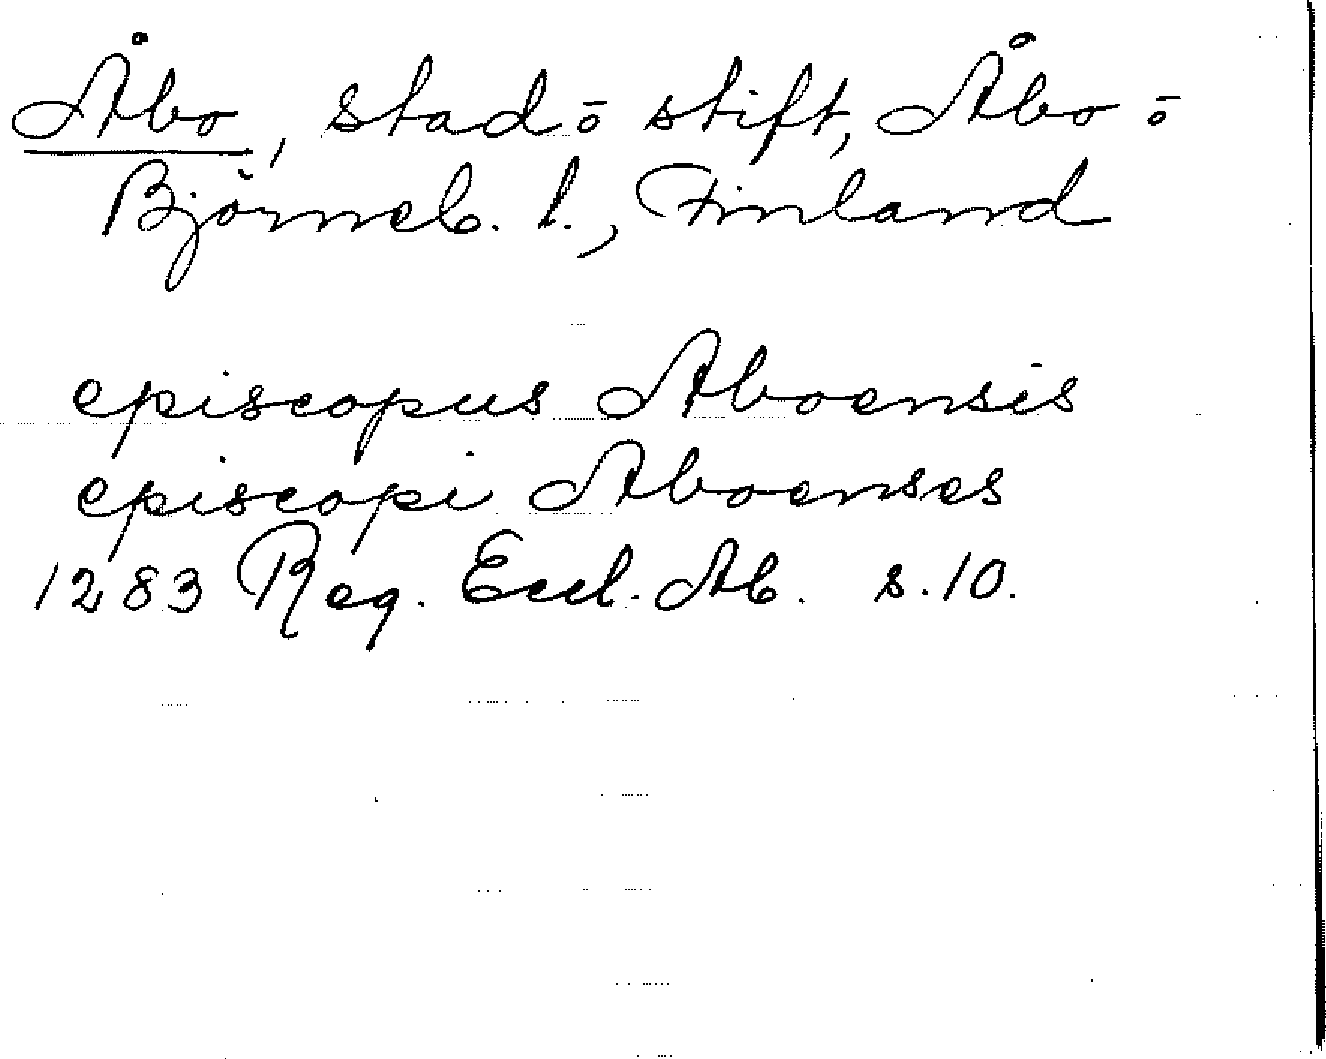 Åbo, stad ō stift, Åbo ō
Björneb. l., Finland
episcopus Aboensis
episcopi Aboenses
1283 Reg. Eccl. Ab. s. 10.